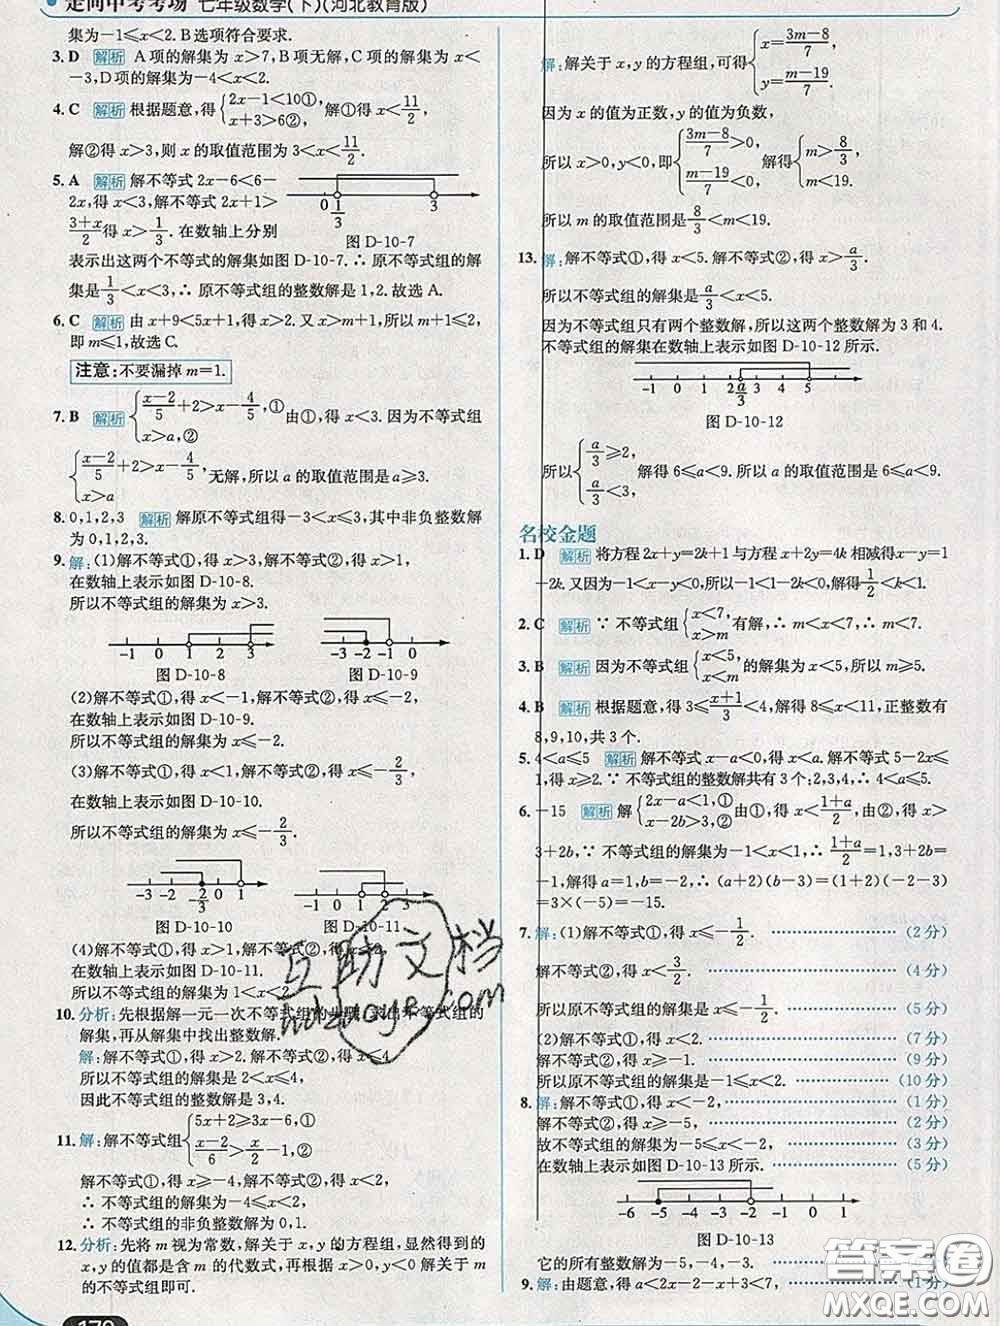 走向中考考场 七年级数学(下)(河北教育版)
集为-1≤x<2.B选项符合要求.
3. D 解析 A项的解集为x>7,B项无解,C项的解集为x<
-3,D项的解集为-4<x<2.
4. C 解析 根据题意,得{2x-1<10①, x+3>6②, 解①得x<11/2,
解②得x>3,则x的取值范围为3<x<11/2.
5. A 解析 解不等式2x-6<6-
2x,得x<3,解不等式2x+1>
(3+x)/2得x>1/3.在数轴上分别
0 1/3 3
图D-10-7
表示出这两个不等式的解集如图D-10-7.∴原不等式的解
集是1/3<x<3,∴原不等式组的整数解是1,2.故选A.
6. C 解析 由x+9<5x+1,得x>2.又x>m+1,所以m+1≤2,
即m≤1,故选C.
注意:不要漏掉m=1.
7. B 解析 {(x-2)/5+2>x-4/5,① x>a,② 由①,得x<3.因为不等式组
{(x-2)/5+2>x-4/5, x>a 无解,所以a的取值范围是a≥3.
8. 0,1,2,3 解析 解原不等式组得-3<x≤3,其中非负整数解
为0,1,2,3.
9. 解:(1)解不等式①,得x>3,解不等式②,得x>1,
在数轴上表示如图D-10-8.
所以不等式组的解集为x>3.
-1 0 1 2 3
图D-10-8
-3 -2 -1 0
图D-10-9
(2)解不等式①,得x<-1,解不等式②,得x≤-2,
在数轴上表示如图D-10-9.
所以不等式组的解集为x≤-2.
(3)解不等式①,得x<1,解不等式②,得x≤-2/3,
在数轴上表示如图D-10-10.
所以不等式组的解集为x≤-2/3.
-3 -2 -2/3 0 1
图D-10-10
-2 -1 0 1 2 3
图D-10-11
(4)解不等式①,得x>1,解不等式②,得x<2,
在数轴上表示如图D-10-11.
所以不等式组的解集为1<x<2
10. 分析:先根据解一元一次不等式组的步骤,求出不等式组的
解集,再从解集中找出整数解.
解:解不等式①,得x>2.解不等式②,得x≤4
所以不等式组的解集是2<x≤4,
因此不等式组的整数解是3,4.
11. 解:解不等式组{5x+2≥3x-6,① (x-2)/6>x/2-1,②
解不等式①,得x≥-4,解不等式②,得x<2,
∴不等式组的解集为-4≤x<2,
∴不等式组的非负整数解为0,1.
12. 分析:先将m视为常数,解关于x,y的方程组,显然得到的
x,y的值都是含m的代数式,再根据x>0,y<0解关于m
的不等式组即可.
解:解关于x,y的方程组,可得{x=(3m-8)/7, y=(m-19)/7.
因为x的值为正数,y的值为负数,
所以x>0,y<0,即{(3m-8)/7>0, (m-19)/7<0, 解得{m>8/3, m<19.
所以m的取值范围是8/3<m<19.
13. 解:解不等式①,得x<5.解不等式②,得x>a/3.
所以不等式组的解集是a/3<x<5.
因为不等式组只有两个整数解,所以这两个整数解为3和4.
不等式组的解集在数轴上表示如图D-10-12所示.
-1 0 1 2 a/3 3 4 5
图D-10-12
所以{a/3≥2, a/3<3, 解得6≤a<9.所以a的取值范围为6≤a<9.
名校金题
1. D 解析 将方程2x+y=2k+1与方程x+2y=4k相减得x-y=1
-2k.又因为-1<x-y<0,所以-1<1-2k<0,解得1/2<k<1.
2. C 解析 ∵不等式组{x<7, x>m有解,∴m<x<7,∴m<7.
3. B 解析 因为不等式组{x<5, x<m的解集为x<5,所以m≥5.
4. B 解析 根据题意,得3≤(x+1)/3<4,解得8≤x<11,正整数有
8,9,10,共3个.
5. 4<a≤5 解析 解不等式x-a<0,得x<a.解不等式5-2x≤
1,得x≥2.∵不等式组的整数解共有3个:2,3,4,∴4<a≤5.
6. -15 解析 解{2x-a<1,① x-2b>3,② 由①,得x<(1+a)/2,由②,得x>
3+2b,∵不等式组的解集为-1<x<1,∴(1+a)/2=1,3+2b=
-1,解得a=1,b=-2,∴(a+2)(b-3)=(1+2)(-2-3)
=3×(-5)=-15.
7. 解:(1)解不等式①,得x≤-1/2. (2分)
解不等式②,得x<3/2. (4分)
所以不等式组的解集是x≤-1/2. (5分)
(2)解不等式①,得x<2. (7分)
解不等式②,得x≥-1. (9分)
所以原不等式组的解集是-1≤x<2. (10分)
8. 解:解不等式①,得x<-2, (1分)
解不等式②,得x≥-5, (2分)
故不等式组的解集为-5≤x<-2, (3分)
在数轴上表示如图D-10-13所示. (5分)
-6 -5 -4 -3 -2 -1 0 1
图D-10-13
它的所有整数解为-5,-4,-3.
9. 解:由题意,得a<2x-2-x+3<7, (1分)
170
互助文档
huzuoye.com
答案圈
MXQE.COM